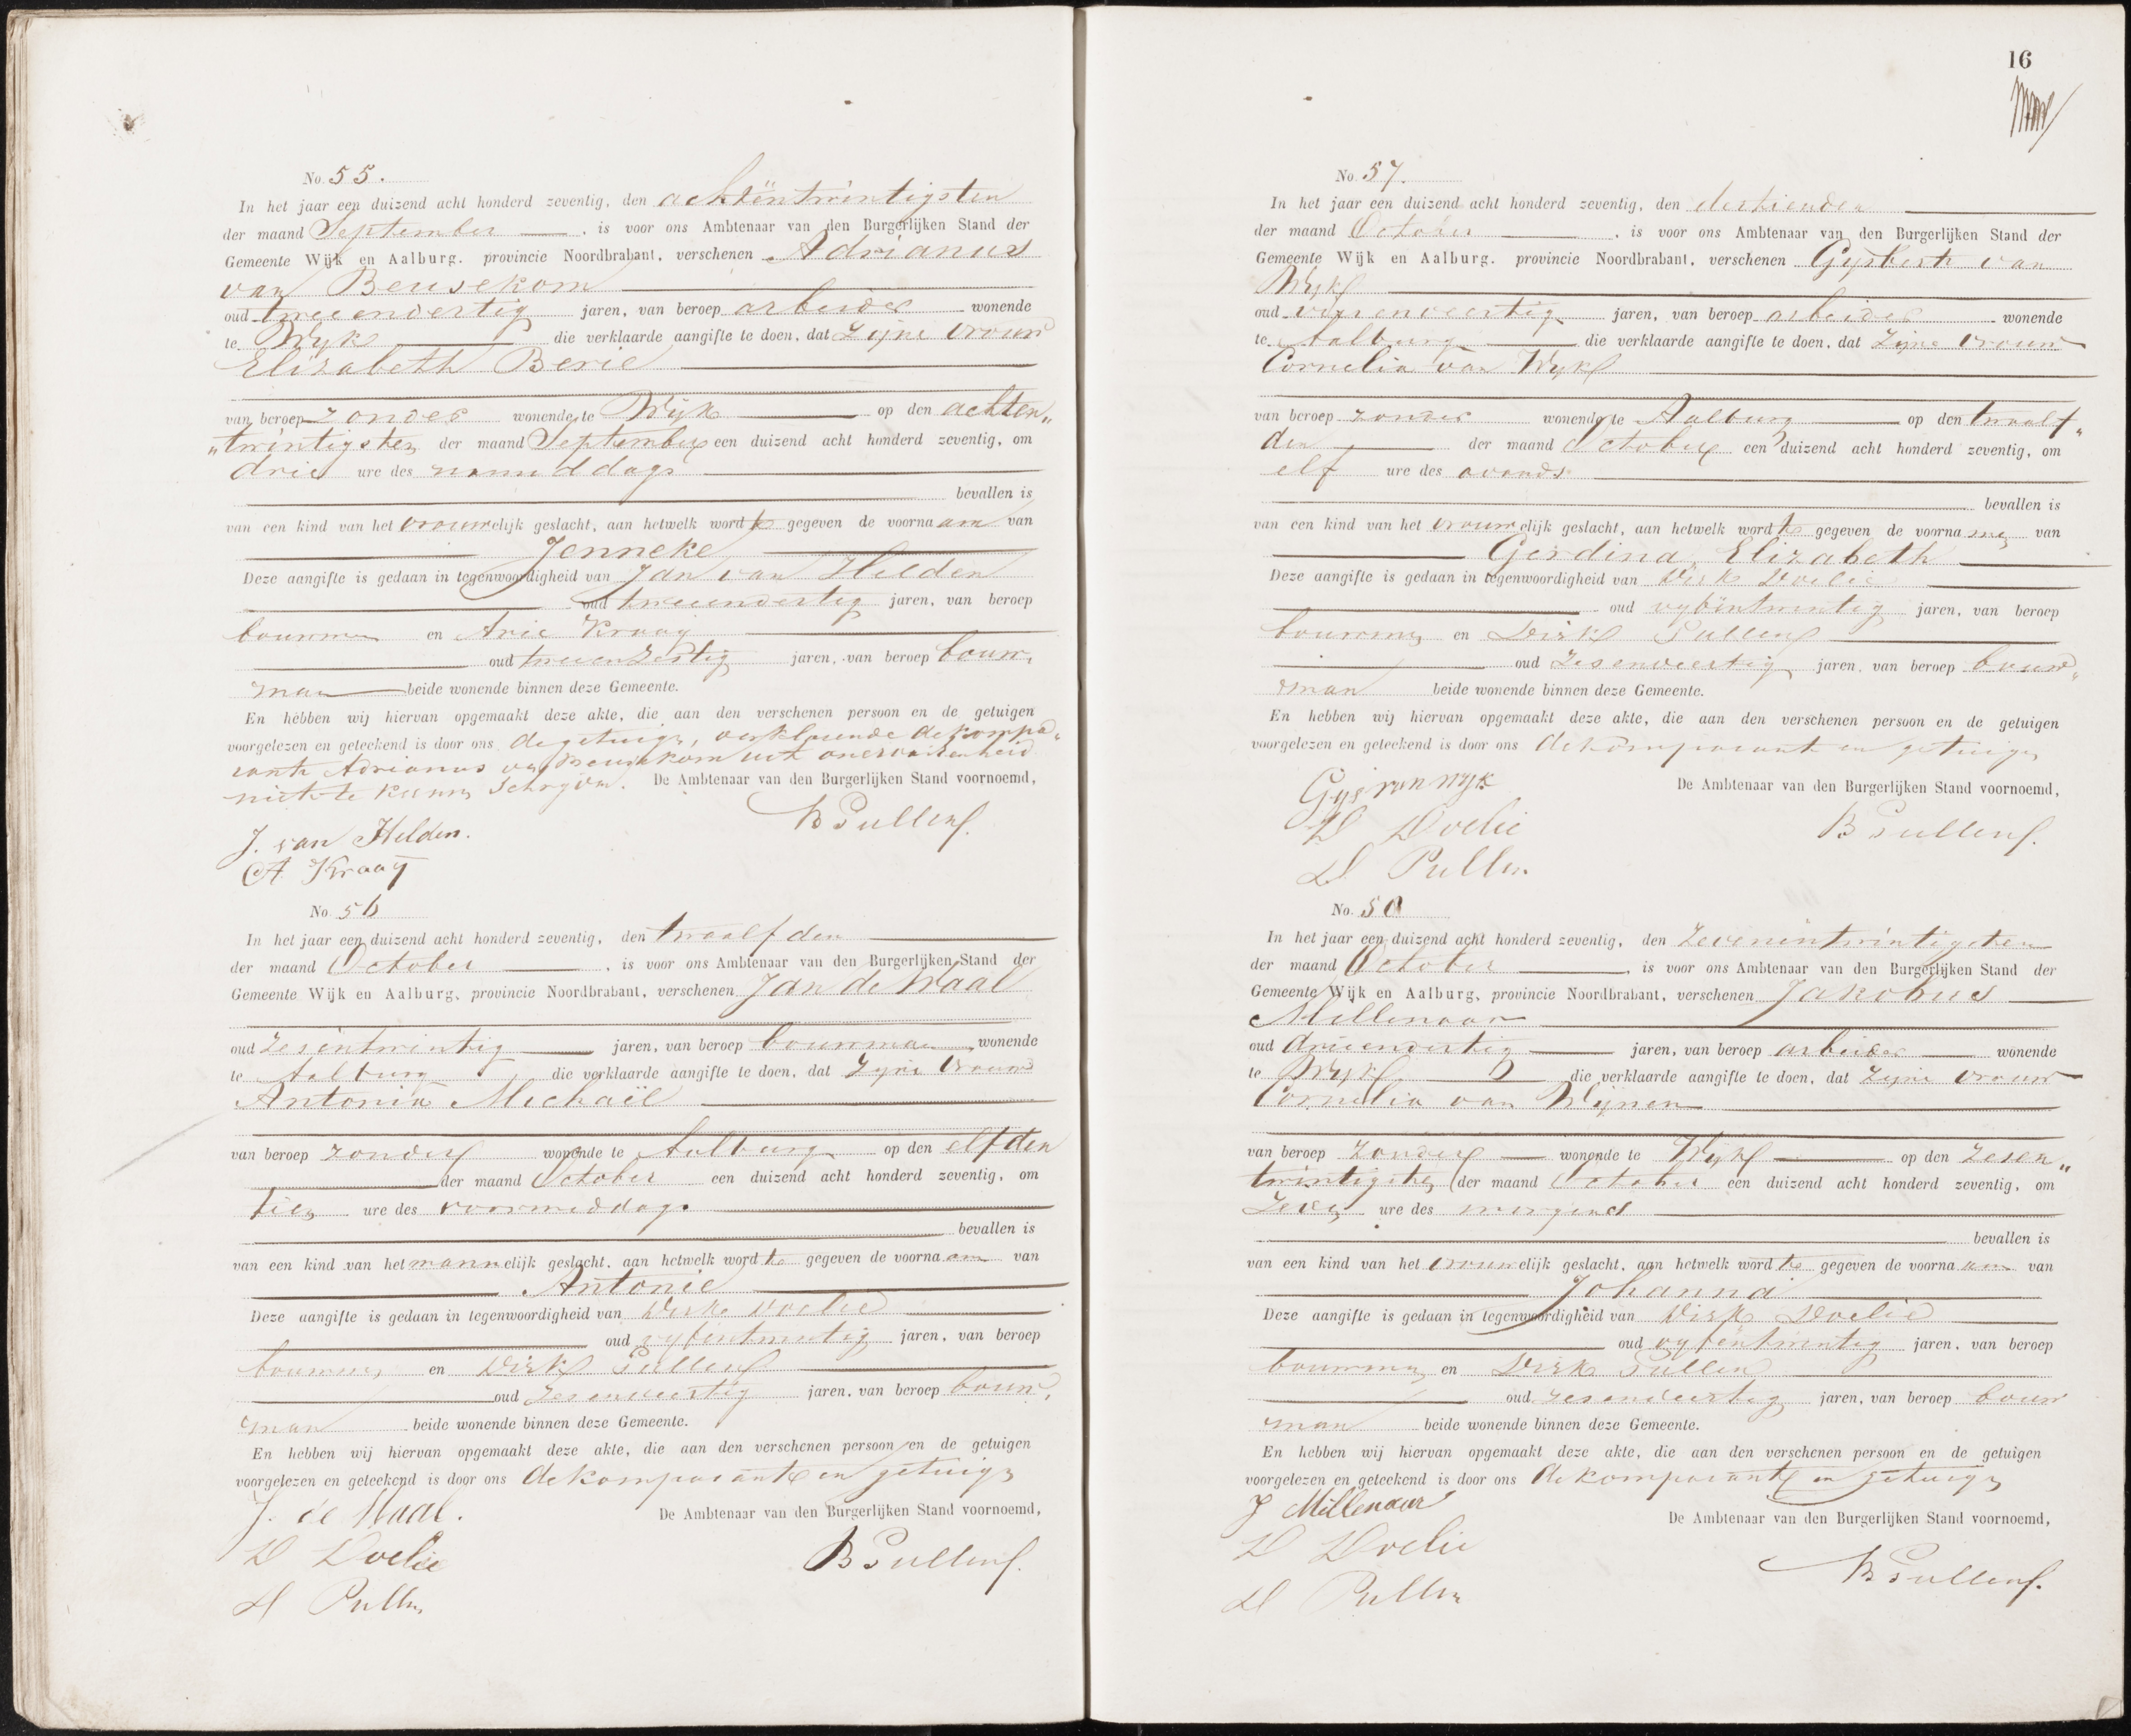 No. 55.
In het jaar een duizend acht honderd zeventig, den achtëntwintigsten
der maand September, is voor ons Ambtenaar van den Burgerlijken Stand der
Gemeente Wijk en Aalburg, provincie Noordbrabant, verschenen Adrianus
van Beusekom
oud tweeendertig jaren, van beroep arbeider wonende
te Wijk die verklaarde aangifte te doen, dat zijne vrouw
Elizabeth Berie
van beroep zonder wonende te Wijk op den achten„
„twintigsten der maand September een duizend acht honderd zeventig, om
drie ure des namiddags
bevallen is
van een kind van het vrouwelijk geslacht, aan hetwelk wordt gegeven de voornaam van
Jenneke
Deze aangifte is gedaan in tegenwoordigheid van Jan van Helden
oud tweeendertig jaren, van beroep
bouwman en Arie Kraaij
oud tweeenzestig jaren, van beroep bouw„
man beide wonende binnen deze Gemeente.
En hebben wij hiervan opgemaakt deze akte, die aan den verschenen persoon en de getuigen
voorgelezen en geteekend is door ons de getuigen, verklarende de kompa„
rante Adrianus van Beusekom uit onervarenheid
niet te kunnen schrijven. De Ambtenaar van den Burgerlijken Stand voornoemd,
B Pullen
J. van Helden.
A Kraaij
No. 56
In het jaar een duizend acht honderd zeventig, den twaalfden
der maand October, is voor ons Ambtenaar van den Burgerlijken Stand der
Gemeente Wijk en Aalburg, provincie Noordbrabant, verschenen Jan de Waal
oud zesëntwintig jaren, van beroep bouwman wonende
te Aalburg die verklaarde aangifte te doen, dat zijne vrouw
Antonia Michaël
van beroep zonder wonende te Aalburg op den elfden
der maand October een duizend acht honderd zeventig, om
tien ure des voormiddags
bevallen is
van een kind van het mannelijk geslacht, aan hetwelk wordt gegeven de voornaam van
Antonie
Deze aangifte is gedaan in tegenwoordigheid van Dirk Doelie
oud vyfëntwintig jaren, van beroep
bouwman en Dirk Pullen
oud zesenveertig jaren, van beroep bouw„
man beide wonende binnen deze Gemeente.
En hebben wij hiervan opgemaakt deze akte, die aan den verschenen persoon en de getuigen
voorgelezen en geteekend is door ons de komparant en getuigen
J. de Waal.
De Ambtenaar van den Burgerlijken Stand voornoemd,
D Doelie
B Pullen
D Pullen
16
No. 57.
In het jaar een duizend acht honderd zeventig, den dertienden
der maand October, is voor ons Ambtenaar van den Burgerlijken Stand der
Gemeente Wijk en Aalburg, provincie Noordbrabant, verschenen Gysbert van
Wyk
oud vierenveertig jaren, van beroep arbeider wonende
te Aalburg die verklaarde aangifte te doen, dat zijne vrouw
Cornelia van Wyk
van beroep zonder wonende te Aalburg op den twaalf„
den der maand October een duizend acht honderd zeventig, om
elf ure des avonds
bevallen is
van een kind van het vrouwelijk geslacht, aan hetwelk wordt gegeven de voornamen van
Gerdina, Elizabeth
Deze aangifte is gedaan in tegenwoordigheid van Dirk Doelie
oud vyfëntwintig jaren, van beroep
bouwman en Dirk Pullen
oud zesenveertig jaren, van beroep bouw„
man beide wonende binnen deze Gemeente.
En hebben wij hiervan opgemaakt deze akte, die aan den verschenen persoon en de getuigen
voorgelezen en geteekend is door ons de komparant en getuigen
Gys van wyk
De Ambtenaar van den Burgerlijken Stand voornoemd,
D Doelie
B Pullen
D Pullen
No. 58
In het jaar een duizend acht honderd zeventig, den zevenëntwintigsten
der maand October, is voor ons Ambtenaar van den Burgerlijken Stand der
Gemeente Wijk en Aalburg, provincie Noordbrabant, verschenen Jakobus
Millenaar
oud drieendertig jaren, van beroep arbeider wonende
te Wyk die verklaarde aangifte te doen, dat zijne vrouw
Cornelia van Wijnen
van beroep zonder wonende te Wyk op den zesen„
twintigsten der maand October een duizend acht honderd zeventig, om
zeven ure des morgens
bevallen is
van een kind van het vrouwelijk geslacht, aan hetwelk wordt gegeven de voornaam van
Johanna
Deze aangifte is gedaan in tegenwoordigheid van Dirk Doelie
oud vyfëntwintig jaren, van beroep
bouwman en Dirk Pullen
oud zesenveertig jaren, van beroep bouw
man beide wonende binnen deze Gemeente.
En hebben wij hiervan opgemaakt deze akte, die aan den verschenen persoon en de getuigen
voorgelezen en geteekend is door ons de komparant en getuigen
J Millenaar
De Ambtenaar van den Burgerlijken Stand voornoemd,
D Doelie
B Pullen
D Pullen